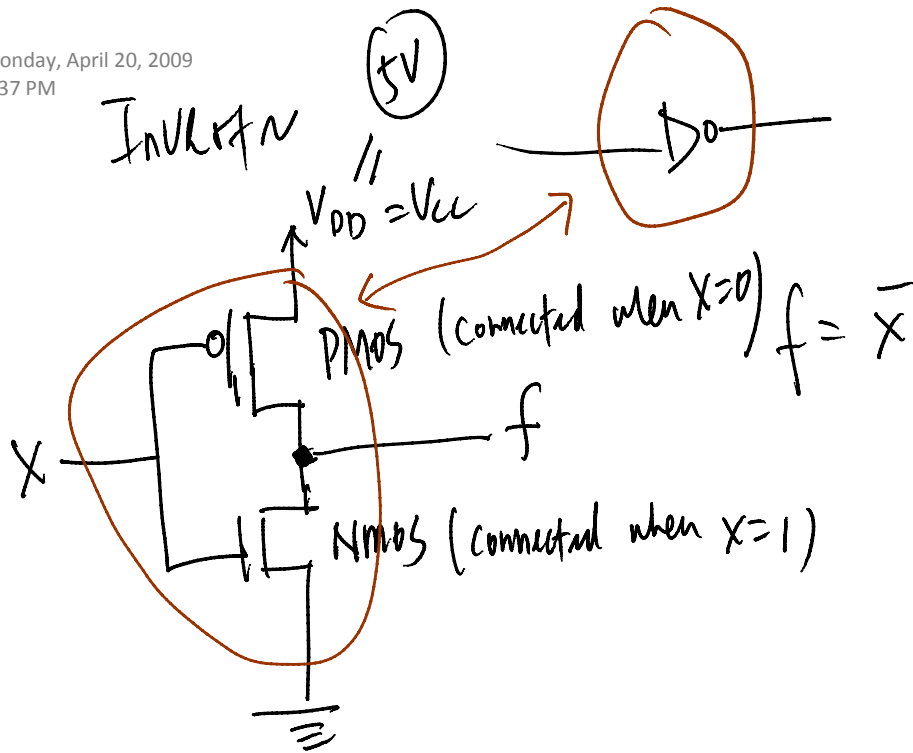 onday, April 20, 2009
37 PM
5V
V_DD = Vcc
PMOS (connected when X=0)
f = x̅
X
f
NMOS (connected when X=1)